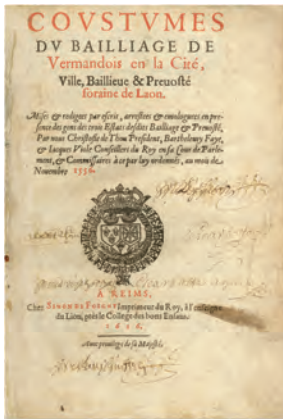 COVSTVMES
DV BAILLIAGE DE
Vermandois en la Cité,
Ville, Baillieue & Preuosté
foraine de Laon.
Mises & redigees par escrit, arrestees & emologuees en pre-
sence des gens des trois Estats desdits Bailliage & Preuosté,
Par nous Christofle de Thou President, Barthelemy Faye,
& Iacques Viole Conseillers du Roy en sa Cour de Parle-
ment, & Commissaires à ce par luy ordonnés, au mois de
Nouembre 1556.
A REIMS,
Chez SIMON DE FOIGNY Imprimeur du Roy, à l'enseigne
du Lion, prés le College des bons Enfans.
Auec priuilege de sa Majesté.